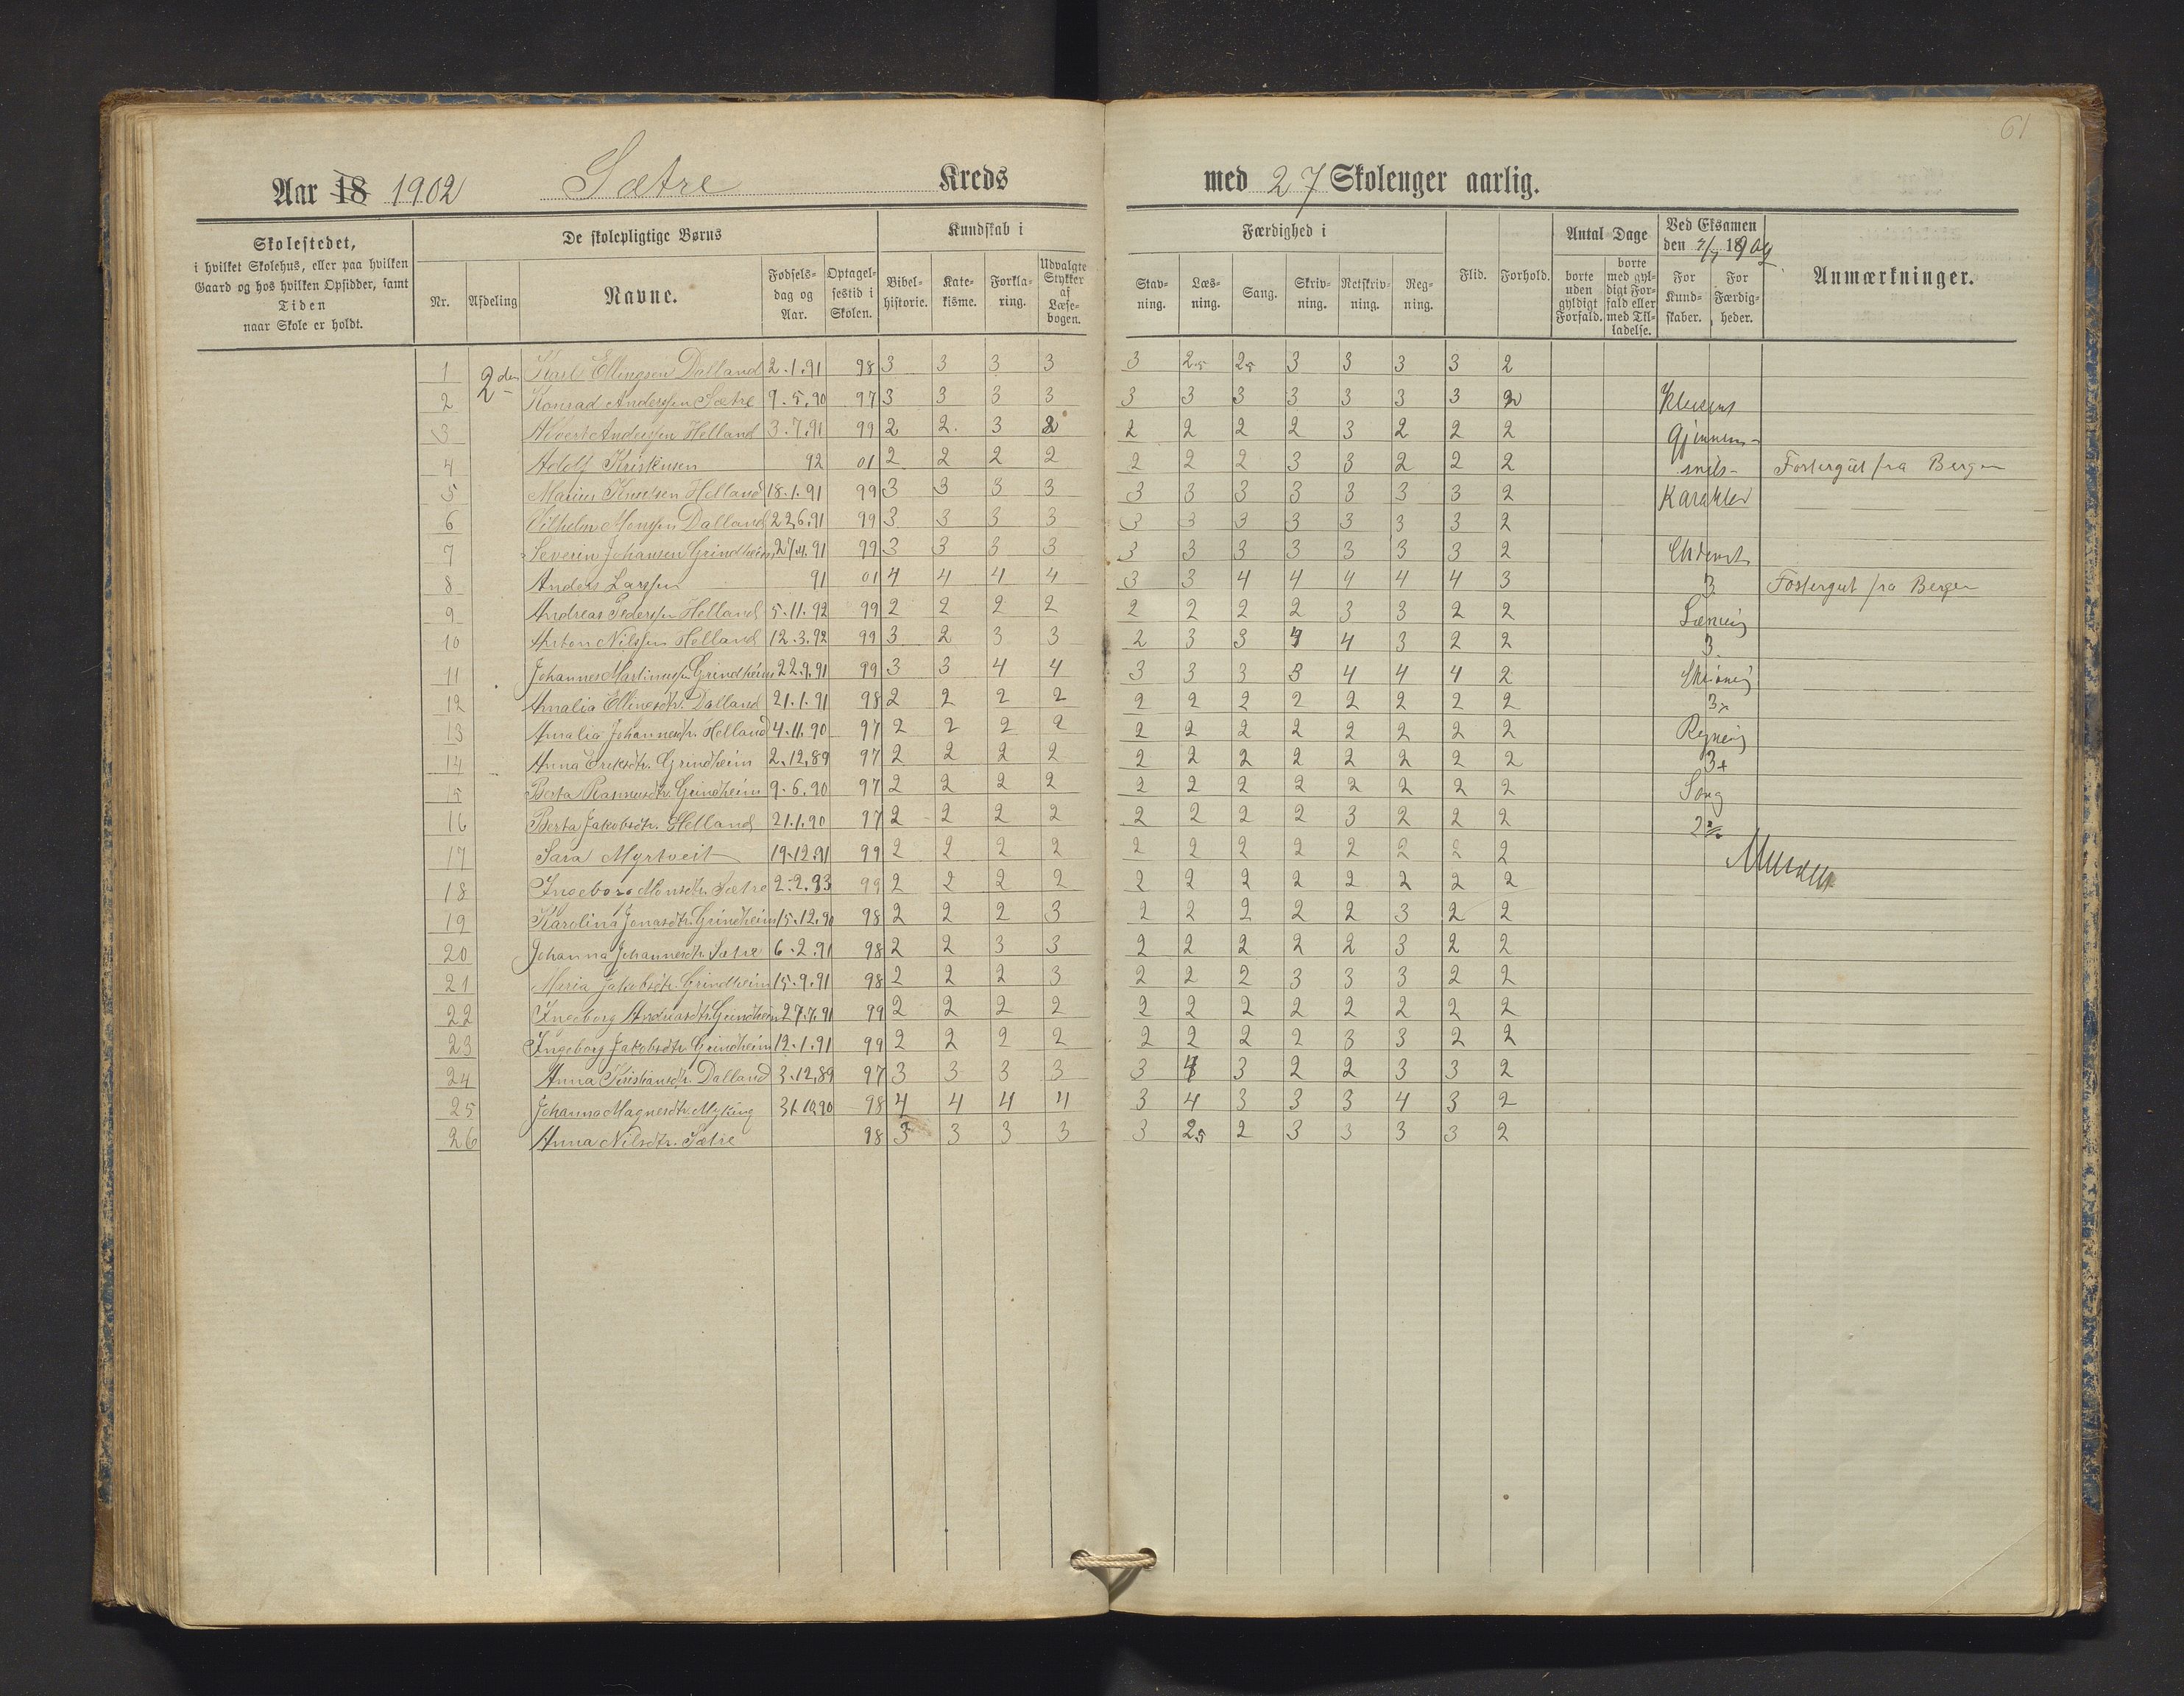 61
Aar 18 1902 Sætre Kreds med 27 Skoleuger aarlig.
Skolestedet, i hvilket Skolehus, eller paa hvilken Gaard og hos hvilken Opsidder, samt Tiden naar Skole er holdt.
De skolepligtige Børns
Nr. Afdeling Navne. Fødsels- dag og Aar. Optagel- sestid i Skolen.
Kundskab i
Bibel- historie. Kate- kisme. Forkla- ring. Udvalgte Stykker af Læse- bogen.
Færdighed i
Stav- ning. Læs- ning. Sang. Skriv- ning. Retskriv- ning. Reg- ning.
Flid. Forhold.
Antal Dage
borte uden gyldigt Forfald. borte med gyl- digt For- fald eller med Til- ladelse.
Ved Eksamen den 18904
For Kund- skaber. For Færdig- heder.
Anmærkninger.
1 2den Karl Ellingsen Dalland 2.1.91 98 3 3 3 3 3 2.5 2.5 3 3 3 3 2
2 Konrad Anderssen Sætre 9.5.90 97 3 3 3 3 3 3 3 3 3 3 3 2 Klassens
3 Anderssen Helland 3.7.91 99 2 2 3 2 2 2 2 2 3 2 2 2 Gjennem-
4 Adolf Kristensen 92 01 2 2 2 2 2 2 2 3 3 2 2 2 snits- Fostergut fra Bergen
5 Marius Knutsen Helland 18.1.91 99 3 3 3 3 3 3 3 3 3 3 3 2 Karakter
6 Vilhelm Monssen Dalland 22.6.91 99 3 3 3 3 3 3 3 3 3 3 3 2
7 Severin Johansen Grindheim 27.4.91 99 3 3 3 3 3 3 3 3 3 3 3 2
8 Anders Larssen 91 01 4 4 4 4 3 3 4 4 4 4 4 3 3 Fostergut fra Bergen
9 Andreas Pederssen Helland 5.11.92 99 2 2 2 2 2 2 2 2 3 3 2 2 Læsning
10 Anton Nilssen Helland 12.3.92 99 3 2 3 3 2 3 3 4 4 3 2 2 3
11 Johannes Martinussen Grindheim 22.9.91 99 3 3 4 4 3 3 3 3 4 4 4 2 Skrivning
12 Amalia Ellingsdtr. Dalland 21.1.91 98 2 2 2 2 2 2 2 2 2 2 2 2 3
13 Amalia Johannesdtr. Helland 4.11.90 97 2 2 2 2 2 2 2 2 2 2 2 2 Regning
14 Anna Eriksdtr. Grindheim 2.12.89 97 2 2 2 2 2 2 2 2 2 2 2 2 3+
15 Berta Rasmusdtr. Grindheim 9.6.90 97 2 2 2 2 2 2 2 2 2 2 2 2 Sang
16 Berta Jakobsdtr. Helland 21.1.90 97 2 2 2 2 2 2 2 2 3 2 2 2 2
17 Sara Myrtveit 19.12.91 99 2 2 2 2 2 2 2 2 2 2 2 2
18 Ingeborg Monsdtr. Sætre 2.2.93 99 2 2 2 2 2 2 2 2 2 2 2 2
19 Karolina Jonasdtr. Grindheim 15.12.90 98 2 2 2 3 2 2 2 2 2 3 2 2
20 Johanna Johannesdtr. Sætre 6.2.91 98 2 2 3 3 2 2 2 2 2 3 2 2
21 Maria Jakobsdtr. Grindheim 15.9.91 98 2 2 2 3 2 2 2 3 3 3 2 2
22 Ingeborg Andreasdtr. Grindheim 27.7.91 99 2 2 2 2 2 2 2 2 2 2 2 2
23 Ingeborg Jakobsdtr. Grindheim 12.1.91 99 2 2 2 2 2 2 2 2 3 3 2 2
24 Anna Kristiansdtr. Dalland 3.12.89 97 3 3 3 3 3 4 3 2 2 3 3 2
25 Johanna Magnesdtr. Myking 31.10.90 98 4 4 4 4 3 4 3 3 3 4 3 2
26 Anna Nilsdtr. Sætre 98 3 3 3 3 3 2.5 2 3 3 3 3 2